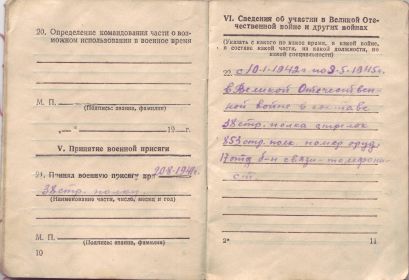 20. Определение командования части о воз-
можном использовании в военное время
М. П.
(Подпись: звание, фамилия)
„ “ 19 г.
V. Принятие военной присяги
21. Принял военную присягу при
38 стр. полку
(Наименование части, число, месяц и год)
М. П.
(Подпись: звание, фамилия)
10
VI. Сведения об участии в Великой Оте-
чественной войне и других войнах
(Указать с какого по какое время, в какой войне,
в составе какой части, на какой должности, по
какой специальности)
22. с 10-1-1942г по 9-5-1945г.
в Великой Отечествен-
ной войне в составе
38 стр. полка стрелок
853 стр. полк. номер оруд.
17 отд. б-н связи-телефони-
ст.
2*
11